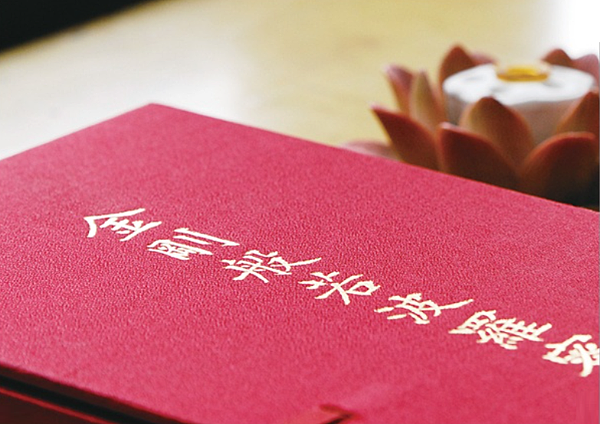 金剛般若波羅蜜